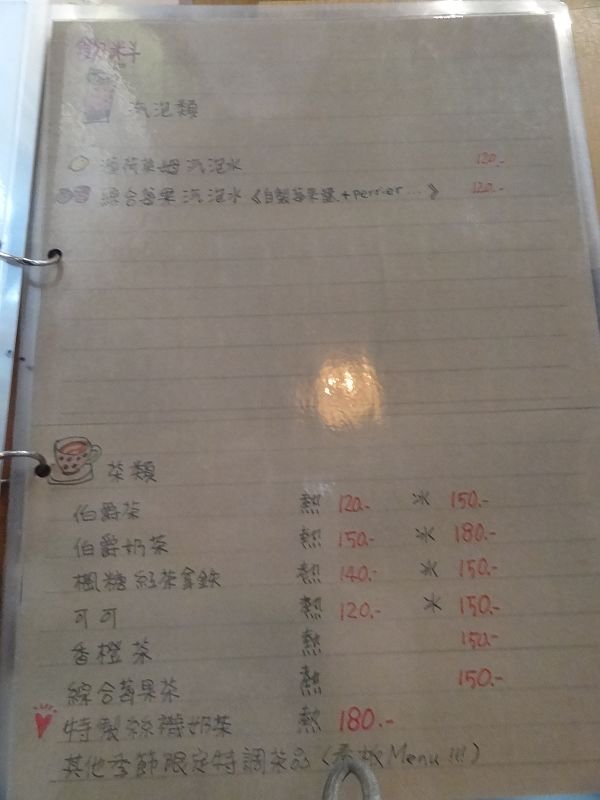 飲料
汽泡類
薄荷萊姆汽泡水 120.-
綜合莓果汽泡水《自製莓果醬+perrier...》 120.-
茶類
伯爵茶 熱 120.- 冰 150.-
伯爵奶茶 熱 150.- 冰 180.-
楓糖紅茶拿鉄 熱 140.- 冰 150.-
可可 熱 120.- 冰 150.-
香橙茶 熱 150.-
綜合莓果茶 熱 150.-
特製絲襪奶茶 熱 180.-
其他季節限定特調茶品(黑板Menu!!!)